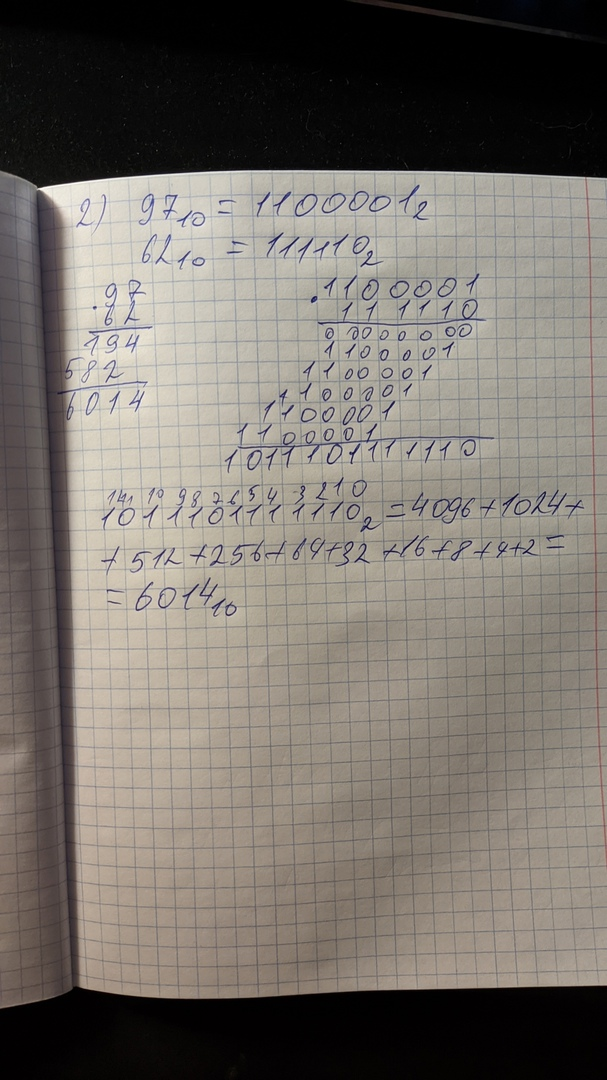 2) 97₁₀ = 1100001₂
62₁₀ = 111110₂
.97
62
194
582
6014
.1100001
111110
0000000
1100001
1100001
1100001
1100001
1100001
1011101111110
11 10 9 8 7 6 5 4 3 2 1 0
1011101111110₂ = 4096 + 1024 +
+ 512 + 256 + 64 + 32 + 16 + 8 + 4 + 2 =
= 6014₁₀